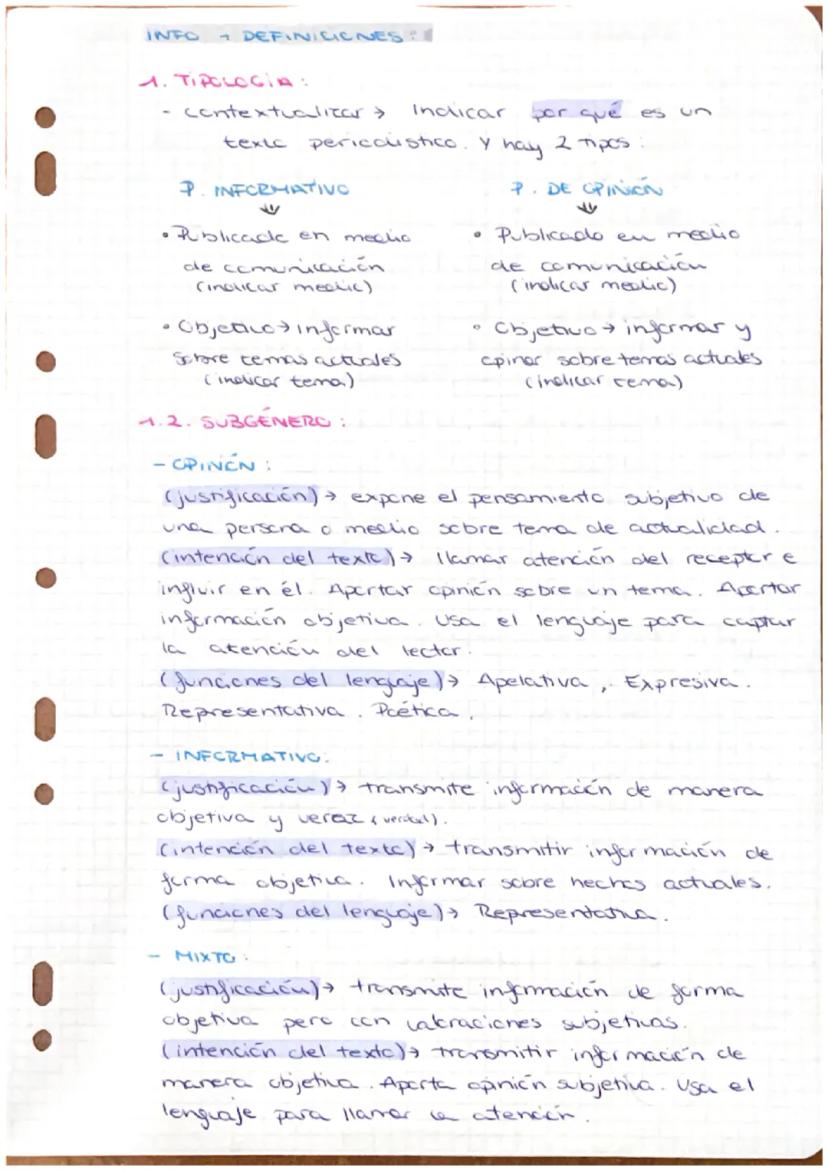 INFO → DEFINICIONES:
1. TIPOLOGÍA:
- contextualizar → Indicar por qué es un
texto periodístico. Y hay 2 tipos:
P. INFORMATIVO
• Publicado en medio
de comunicación
(indicar medio)
• Objetivo → informar
sobre temas actuales
(indicar tema)
P. DE OPINIÓN
• Publicado en medio
de comunicación
(indicar medio)
• Objetivo → informar y
opinar sobre temas actuales
(indicar tema)
1.2. SUBGÉNERO:
- OPINÓN:
(justificación) → expone el pensamiento subjetivo de
una persona o medio sobre tema de actualidad.
(intención del texto) → llamar atención del receptor e
influir en él. Aportar opinión sobre un tema. Aportar
información objetiva. Usa el lenguaje para captar
la atención del lector.
(funciones del lenguaje) → Apelativa, Expresiva.
Representativa. Poética.
- INFORMATIVO:
(justificación) → transmite información de manera
objetiva y veraz (verdad).
(intención del texto) → transmitir información de
forma objetiva. Informar sobre hechos actuales.
(funciones del lenguaje) → Representativa.
- MIXTO:
(justificación) → transmite información de forma
objetiva pero con valoraciones subjetivas.
(intención del texto) → transmitir información de
manera objetiva. Aporta opinión subjetiva. Usa el
lenguaje para llamar la atención.